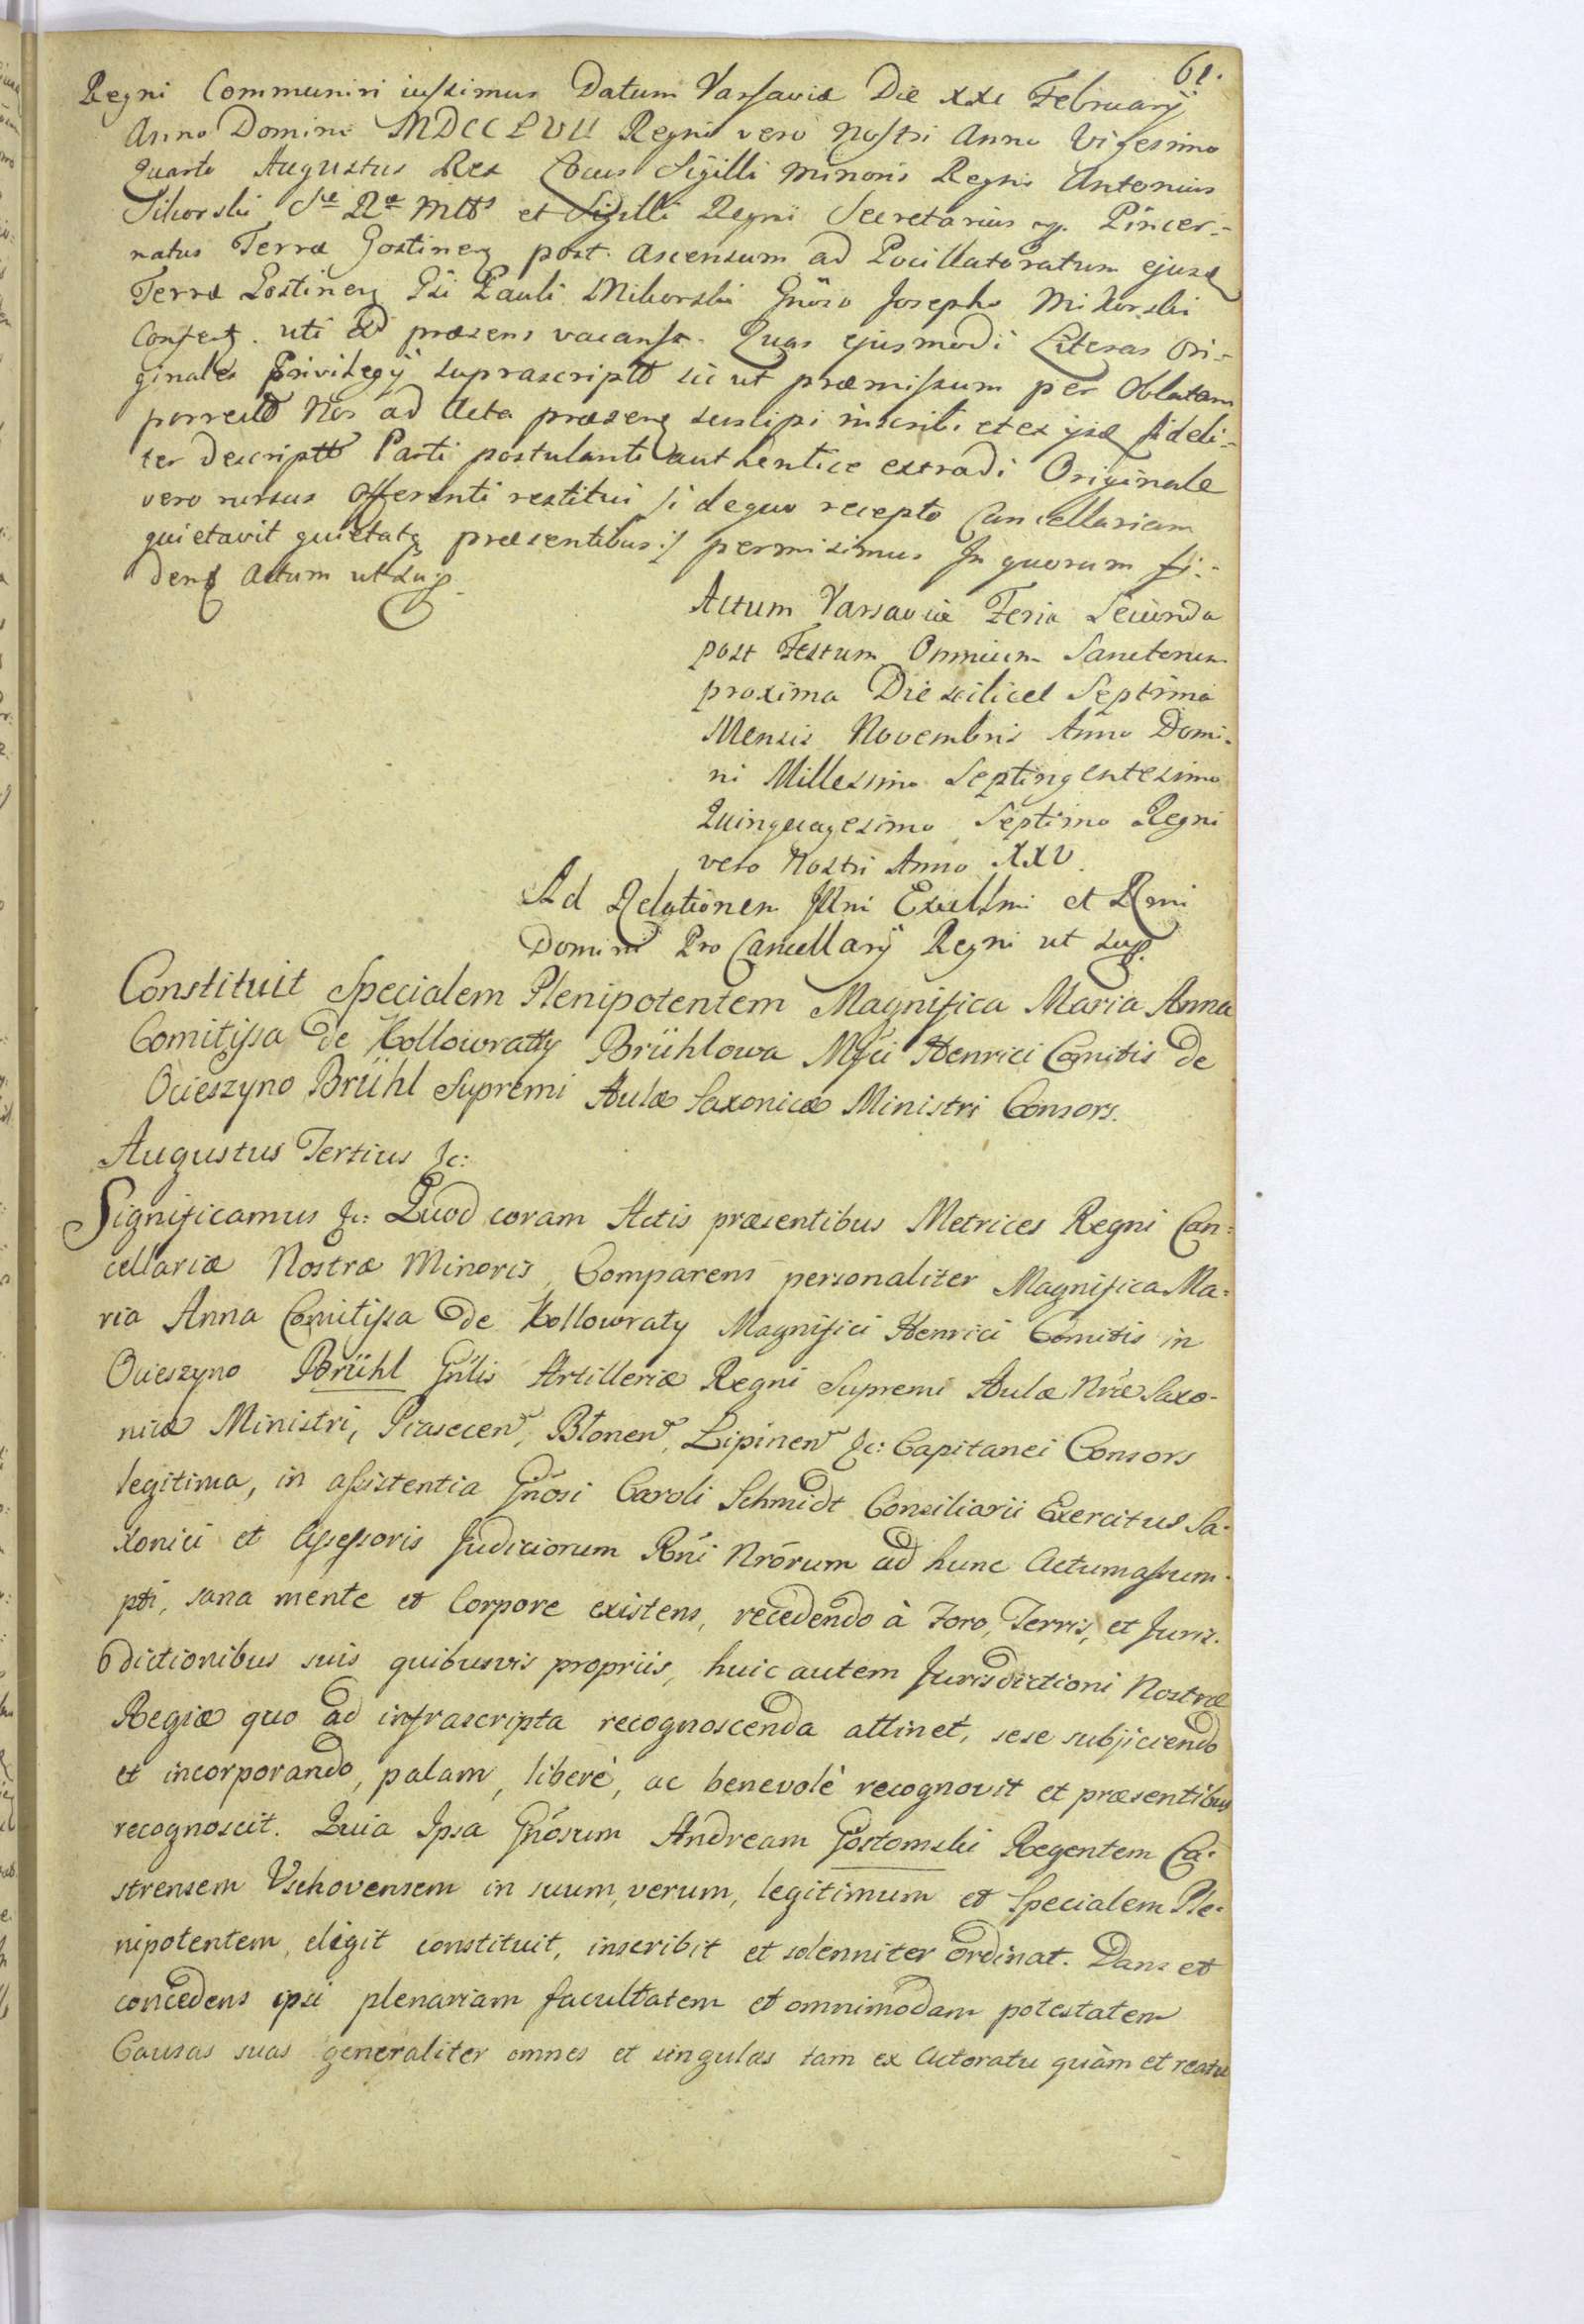 61.
Regni Communiri iussimus Datum Varsaviæ Die XXI February
Anno Domini MDCCLVII Regni vero Nostri Anno Vigesimo
Quarto Augustus Rex Locus Sigilli Minoris Regni Antonius
Sikorski Sæ Ræ Mttis et Sigilli Regni Secretarius Pincer-
natus Terræ Gostinen post ascensum ad Pocillatoratum ejusd
Terræ Gostinen Gsi Pauli Mikorski Gnoso Josepho Mikorski
Confert. uti ad præsens vacans. Quas ejusmodi Literas Ori-
ginales Privilegÿ suprascriptt sic ut præmissum per Oblatam
porrectt Nos ad Acta præsens suscipi inscribi et ex ÿsd fideli-
ter descriptt Parti postulanti authentice extradi Originale
vero rursus Offerenti restitui /: de quo recepto Cancellariam
quietavit quietatq præsentibus :/ permisimus In quorum fi-
dem Actum ut sup.
Actum Varsaviæ Feria Secunda
post Festum Omnium Sanctorum
proxima Die scilicet Septima
Mensis Novembris Anno Domi-
ni Millesimo Septingentesimo
Quinquagesimo Septimo Regni
vero Nostri Anno XXV.
Ad Relationem Illmi Excellmi et Rmi
Domini Pro Cancellarÿ Regni ut sup.
Constituit Specialem Plenipotentem Magnifica Maria Anna
Comitissa de Kollowratty Brühlowa Mfci Henrici Comitis de
Ocieszyno Brühl Supremi Aulæ Saxonicæ Ministri Consors.
Augustus Tertius &c:
Significamus &c: Quod coram Actis præsentibus Metrices Regni Can-
cellariæ Nostræ Minoris, Comparens personaliter Magnifica Ma-
ria Anna Comitissa de Kollowraty Magnifici Henrici Comitis in
Ocieszyno Brühl Gnlis Artilleriæ Regni Supremi Aulæ Nræ Saxo-
nicæ Ministri, Piasecen, Błonen, Lipinen &c: Capitanei Consors
legitima, in assistentia Gnosi Caroli Schmidt Consiliarii Exercitus Sa-
xonici et Assessoris Judiciorum Rni Nrorum ad hunc Actum assum-
pti, sana mente et Corpore existens, recedendo à Foro, Terris, et Juris-
dictionibus suis quibusvis propriis, huic autem Jurisdictioni Nostræ
Regiæ quo ad infrascripta recognoscenda attinet, sese subjiciendo
et incorporando, palam, liberè, ac benevolè recognovit et præsentibus
recognoscit. Quia Ipsa Gnosum Andream Gostomski Regentem Ca-
strensem Vschovensem in suum, verum, legitimum et Specialem Ple-
nipotentem, elegit constituit, inscribit et solenniter ordinat. Dans et
concedens ipsi plenariam facultatem et omnimodam potestatem
Causas suas generaliter omnes et singulas tam ex Actoratu quàm et reatu